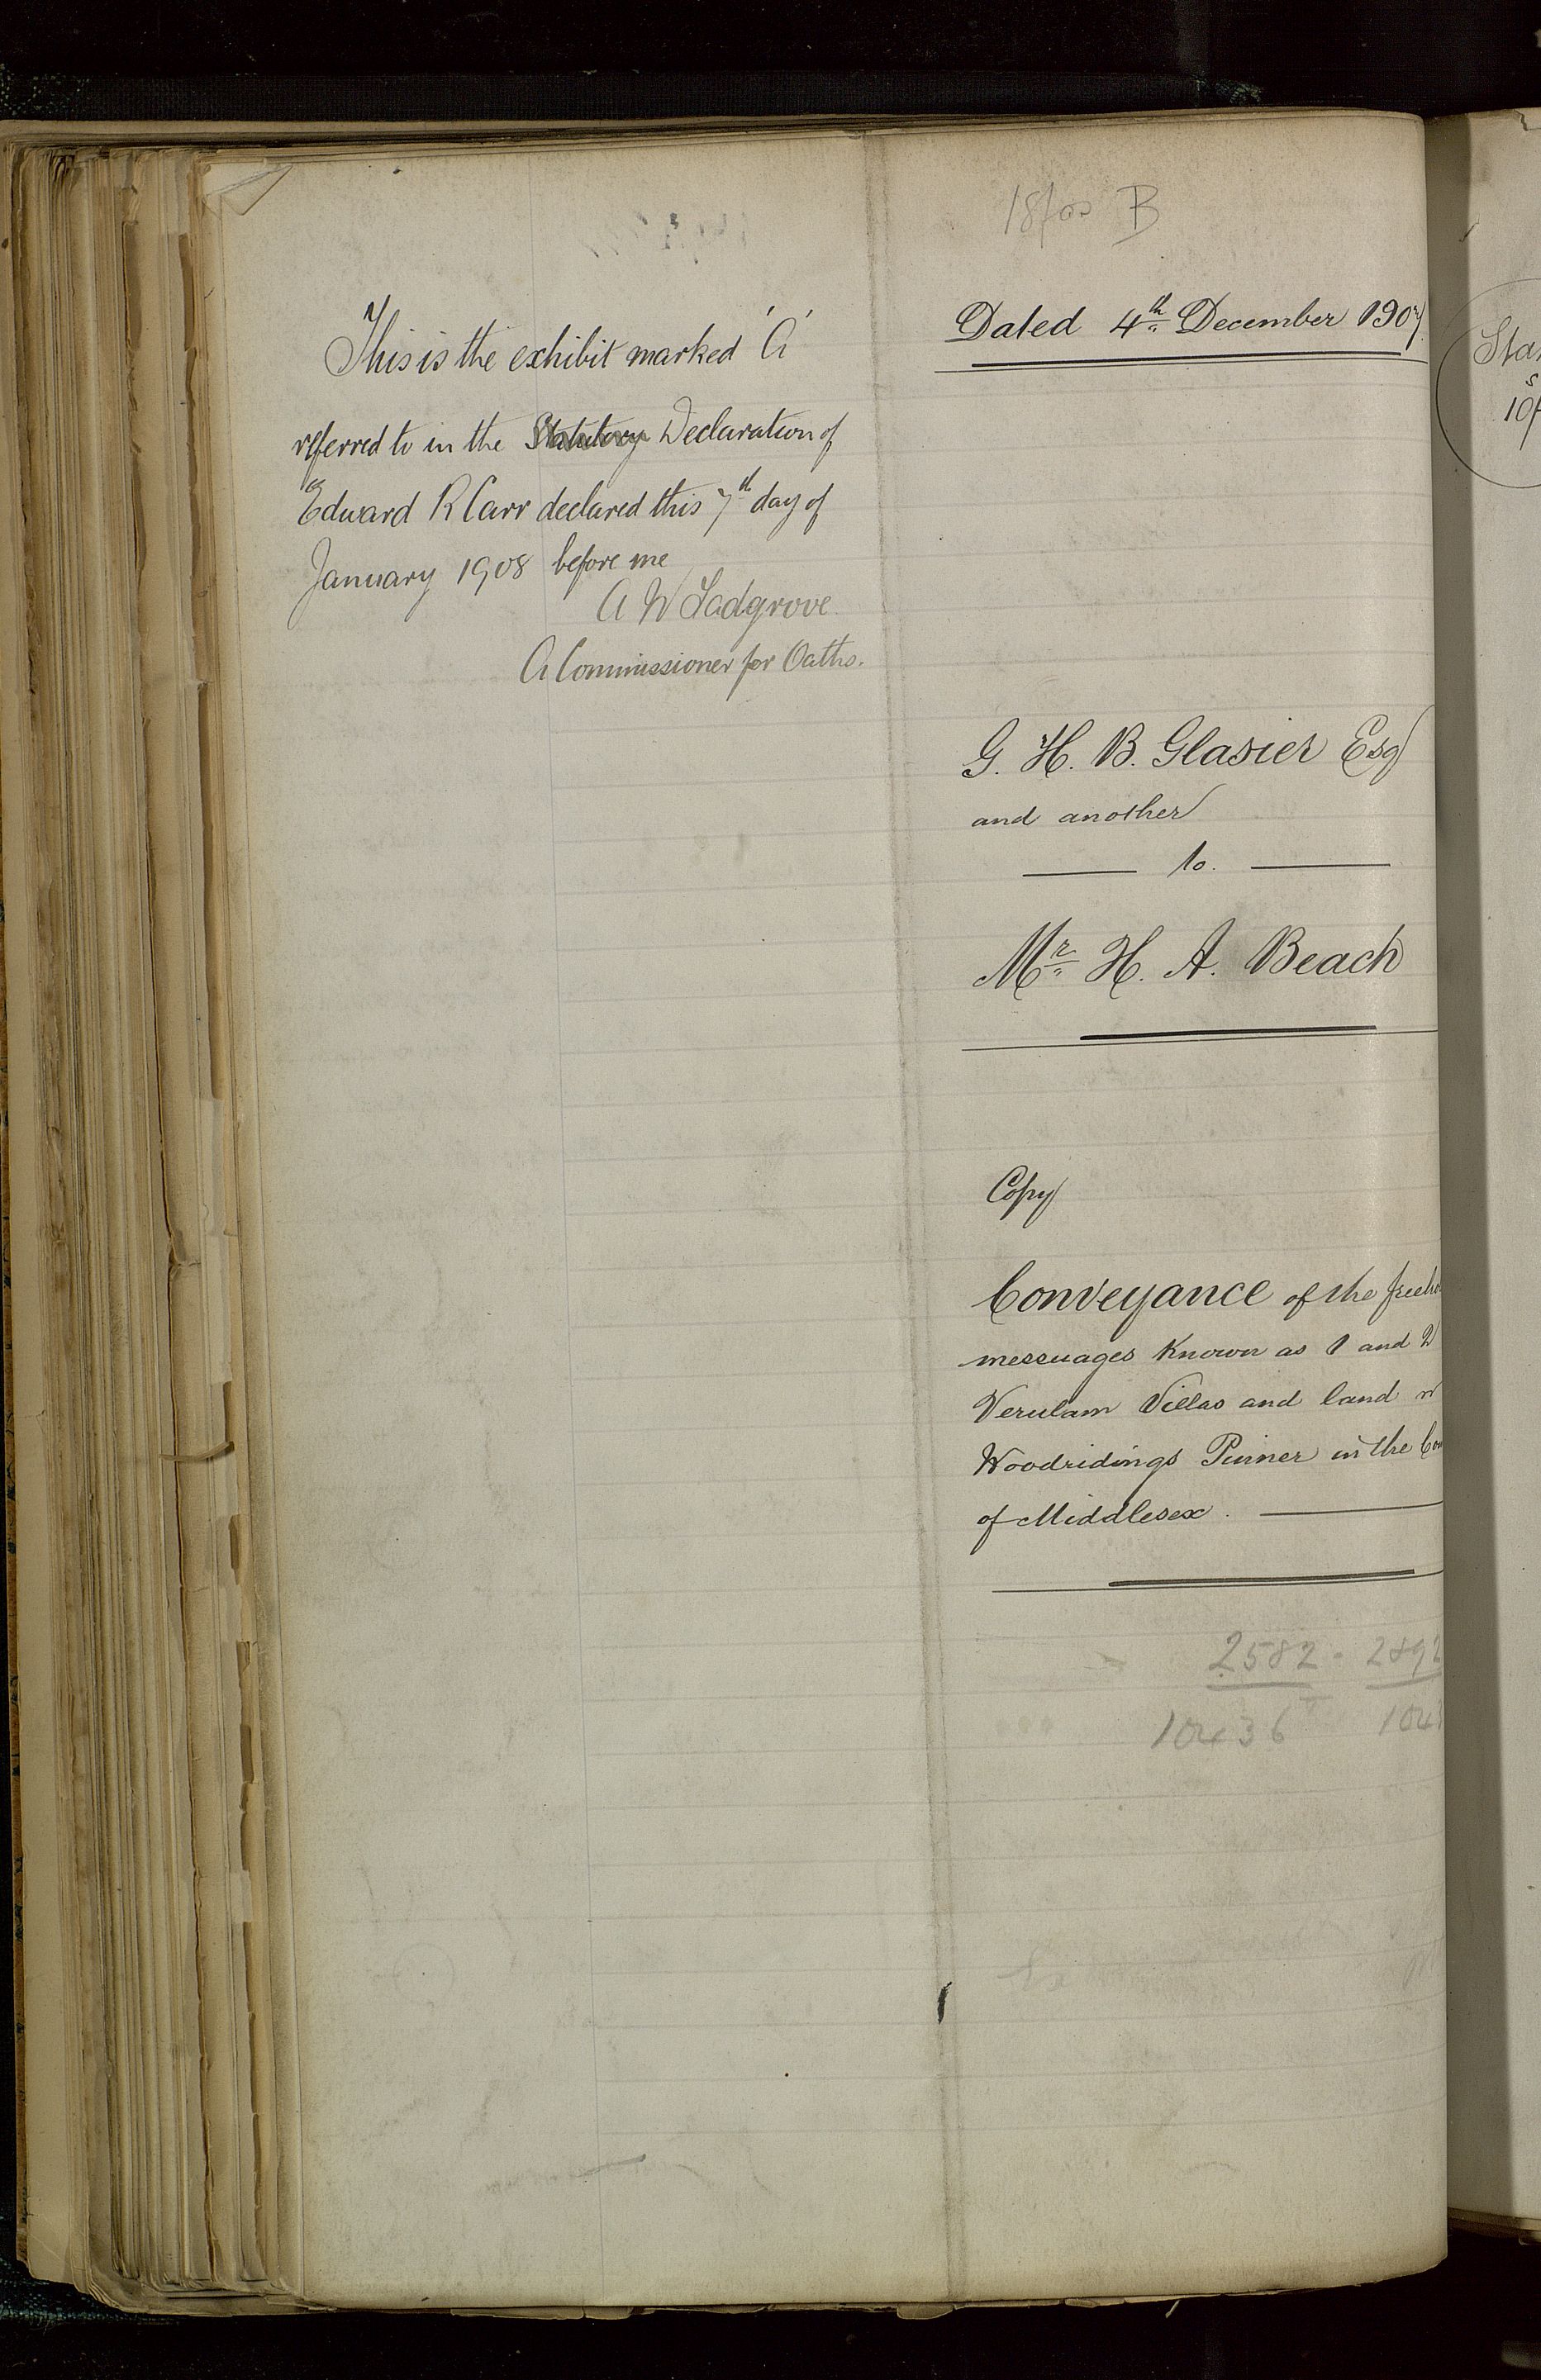 This is the exhibit marked 'A'
referred to in the Statutory Declaration of
Edward R Carr declared this 7th day of
January 1908 before me
A W Ladgrove
A Commissioner for Oaths.
18fos B
Dated 4th December 1907.
G. H. B. Glasier Esq
and another
to.
Mr H. A. Beach
Copy
Conveyance of the freeho
messuages known as 1 and 2
Verulam Villas and land
Woodridings Pinner in the Cou
of Middlesex.
2582 - 2892
10436 104
Sta
10/